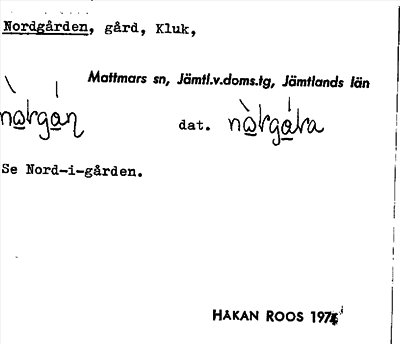 Nordgården, gård, Kluk,
Mattmars sn, Jämtl.v.doms.tg, Jämtlands län
dat.
Se Nord-i-gården.
HÅKAN ROOS 1974